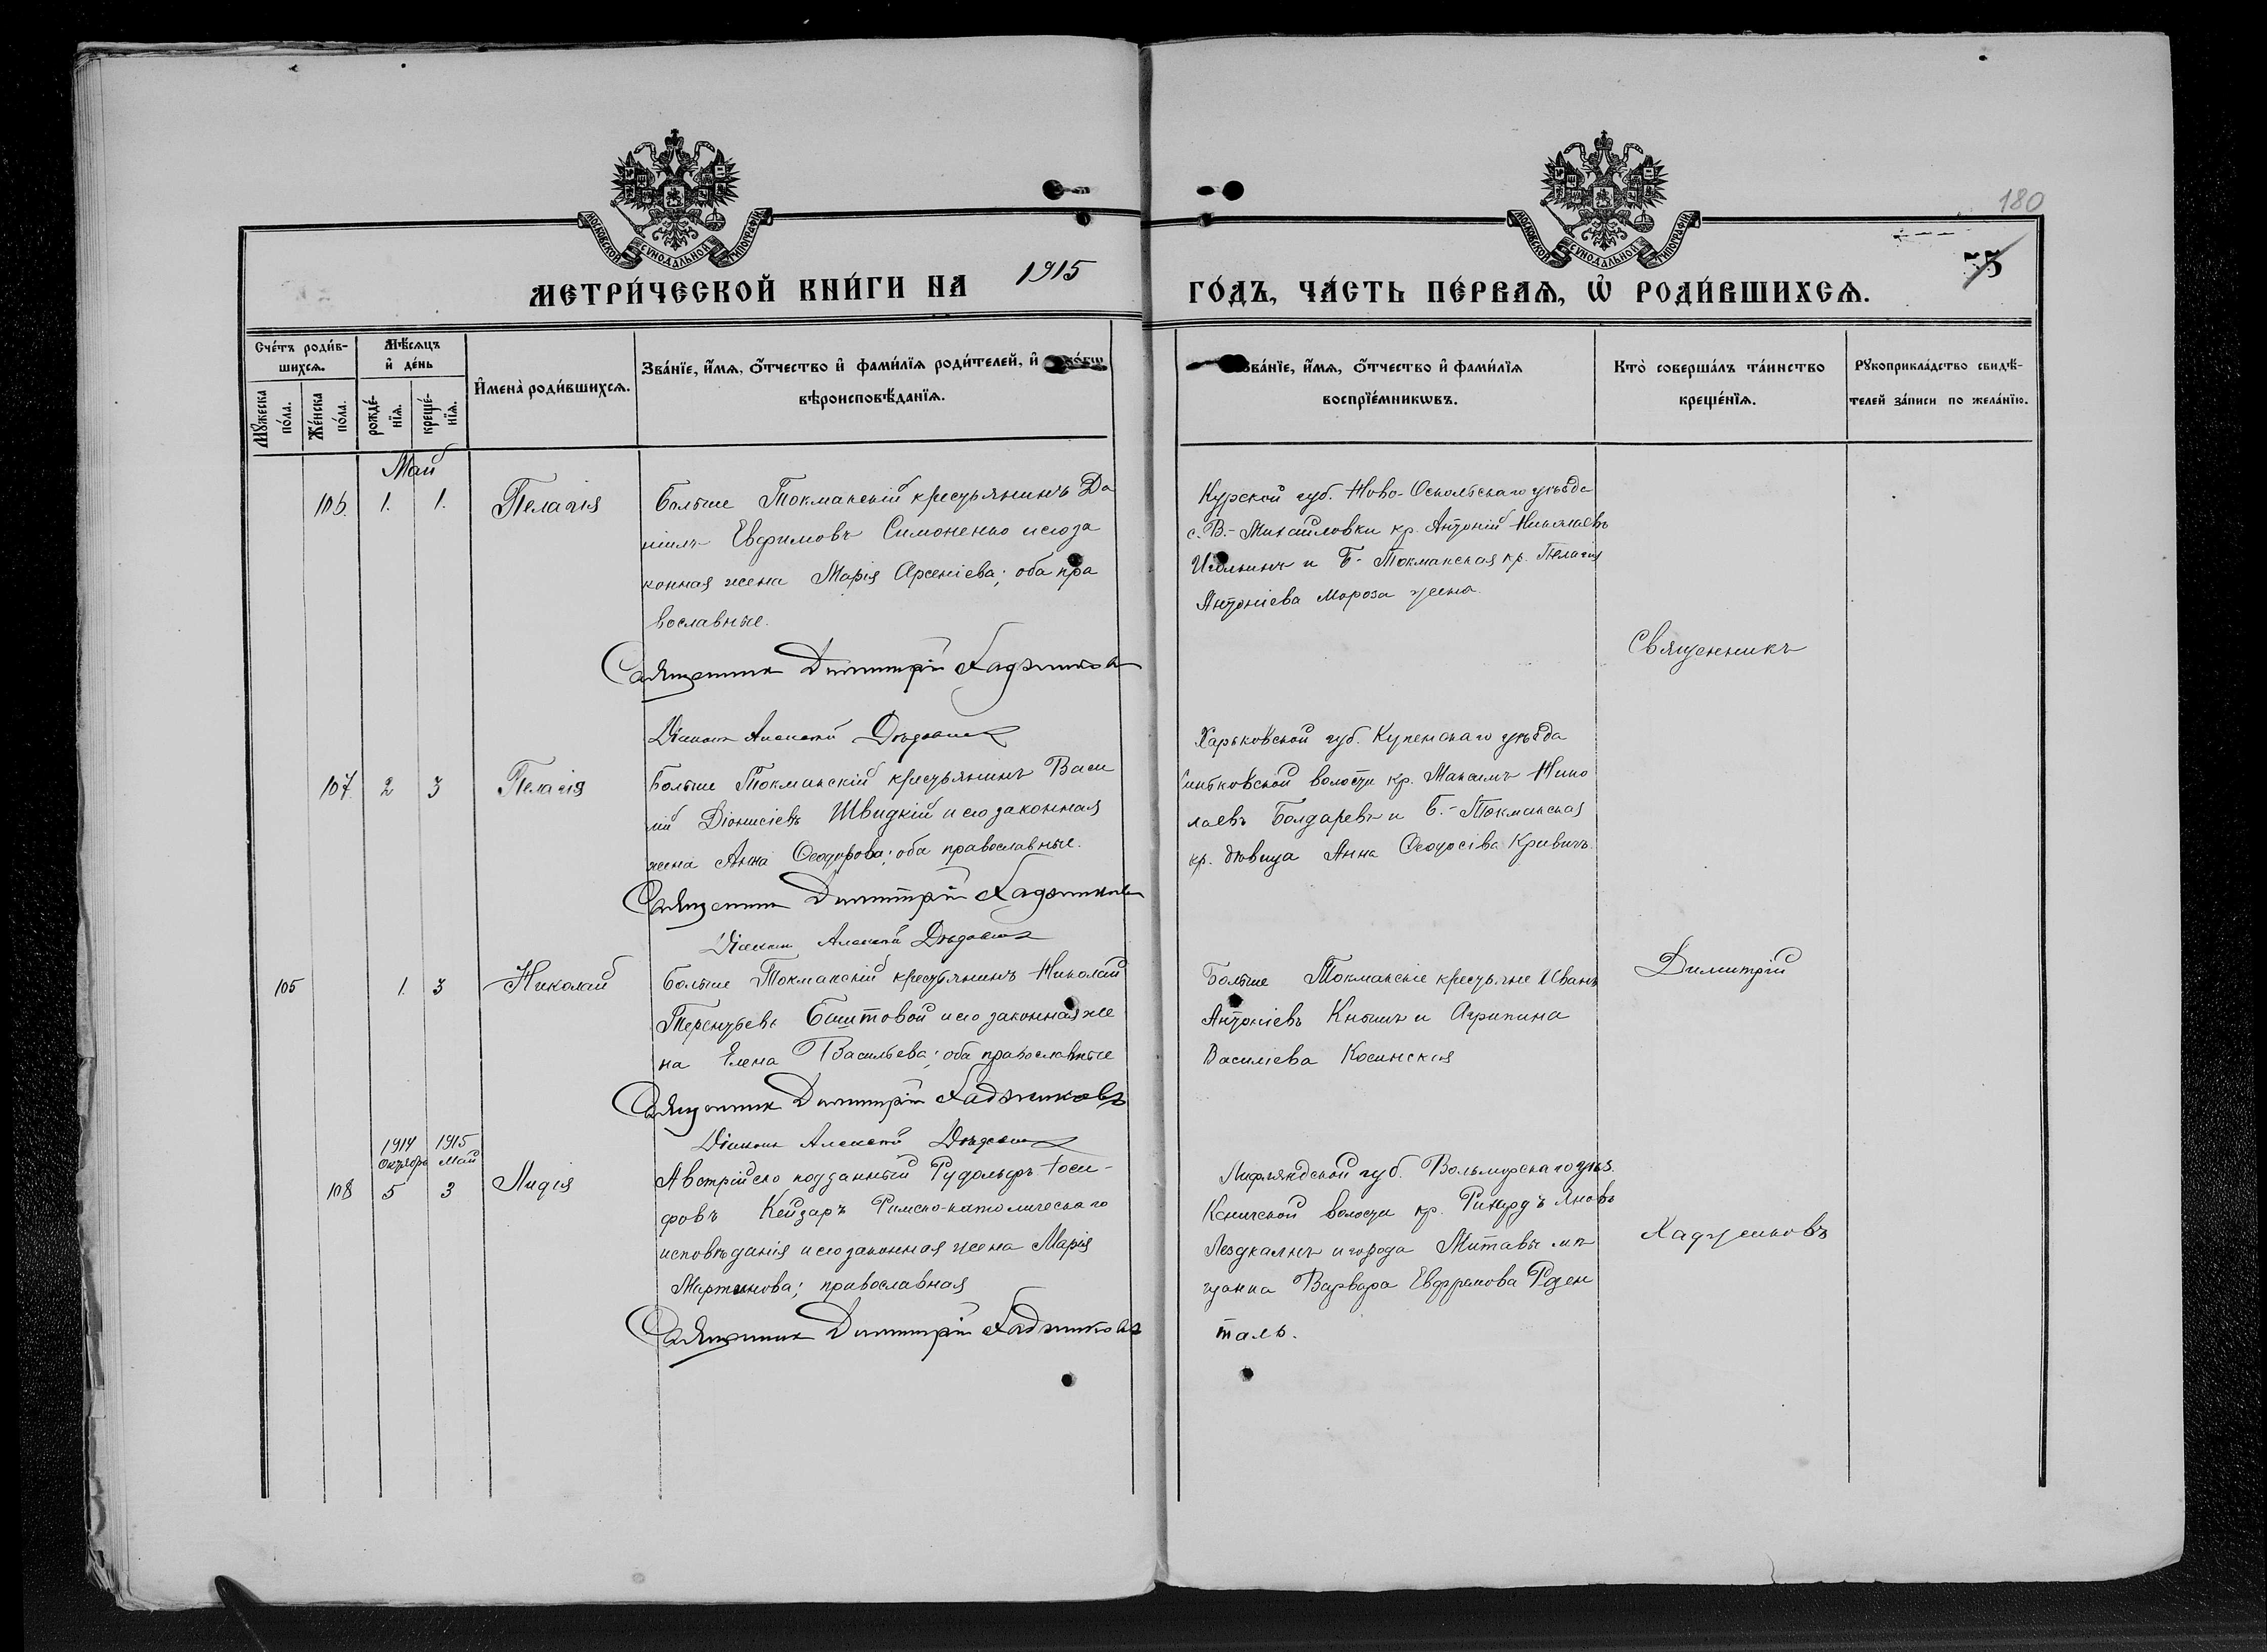 180
75
МОСКОВСКОЙ СѴНОДАЛЬНОЙ ТИПОГРАФІИ
МОСКОВСКОЙ СѴНОДАЛЬНОЙ ТИПОГРАФІИ
МЕТРИ́ЧЕСКОЙ КНИ́ГИ НА 1915 ГО́ДЪ, ЧА́СТЬ ПЕ́РВАѦ, Ѡ҆ РОДИ́ВШИХСѦ.
Сче́тъ роди́в-
шихсѧ.
Мꙋжеска по́ла.
Же́нска по́ла.
Мѣ́сѧцъ
и҆ де́нь
рожде́-
нїѧ.
креще́-
нїѧ.
И҆мена̀ роди́вшихсѧ.
Зва́нїе, и҆́мѧ, ѻ҆́тчество и҆ фами́лїѧ роди́телей, и҆
вѣроисповѣ́данїѧ.
Зва́нїе, и҆́мѧ, ѻ҆́тчество и҆ фами́лїѧ
воспрїе́мникѡвъ.
Кто̀ соверша́лъ та́инство
креще́нїѧ.
Рꙋкоприкла́дство свидѣ́-
телей за́писи по жела́нїю.
Май
106. 1. 1. Пелагія
Больше Токмакскій крестьянинъ Да
ніилъ Евфимовъ Симоненко и его за
конная жена Марія Арсеніева; оба пра
вославные.
Священникъ Димитрій Хаджиновъ
Діаконъ Алексѣй
Курской губ. Ново-Оскольскаго уѣзда
с. В.-Михайловки кр. Антоній Николаевъ
и Б-Токмакская кр. Пелагія
Антоніева Мороза жена.
107. 2 3 Пелагія
Больше Токмакскій крестьянинъ Васи
лій Діонисіевъ Швидкій и его законная
жена Анна Ѳеодорова; оба православные.
Священникъ Димитрій Хаджиновъ
Діаконъ Алексѣй
Харьковской губ. Купенскаго уѣзда
волости кр. Максимъ Нико
лаевъ Болдаревъ и Б.-Токмакская
кр. дѣвица Анна Ѳеодосіева Кривичъ.
105 1. 3 Николай
Больше Токмакскій крестьянинъ Николай
Терентьевъ Баштовой и его законная же
на Елена Васильева; оба православные
Священникъ Димитрій Хаджиновъ
Діаконъ Алексѣй
Больше Токмакскіе крестьяне Иванъ
Антоніевъ Кнышъ и Агрипина
Василіева Косинская
1914 1915
Октябрь Май
108 5 3 Лидія
Австрійско подданный Рудольфъ Іоси-
фовъ Кейзаръ Римско-католическаго
исповѣданія и его законная жена Марія
Мартинова; православная
Священникъ Димитрій Хаджиновъ
Лифляндской губ. Вольмарскаго уѣз.
волости кр. Яновъ
и города Митавы мѣ
щанка Варвара Евфремова Розен
таль.
Священникъ
Димитрій
Хаджиновъ